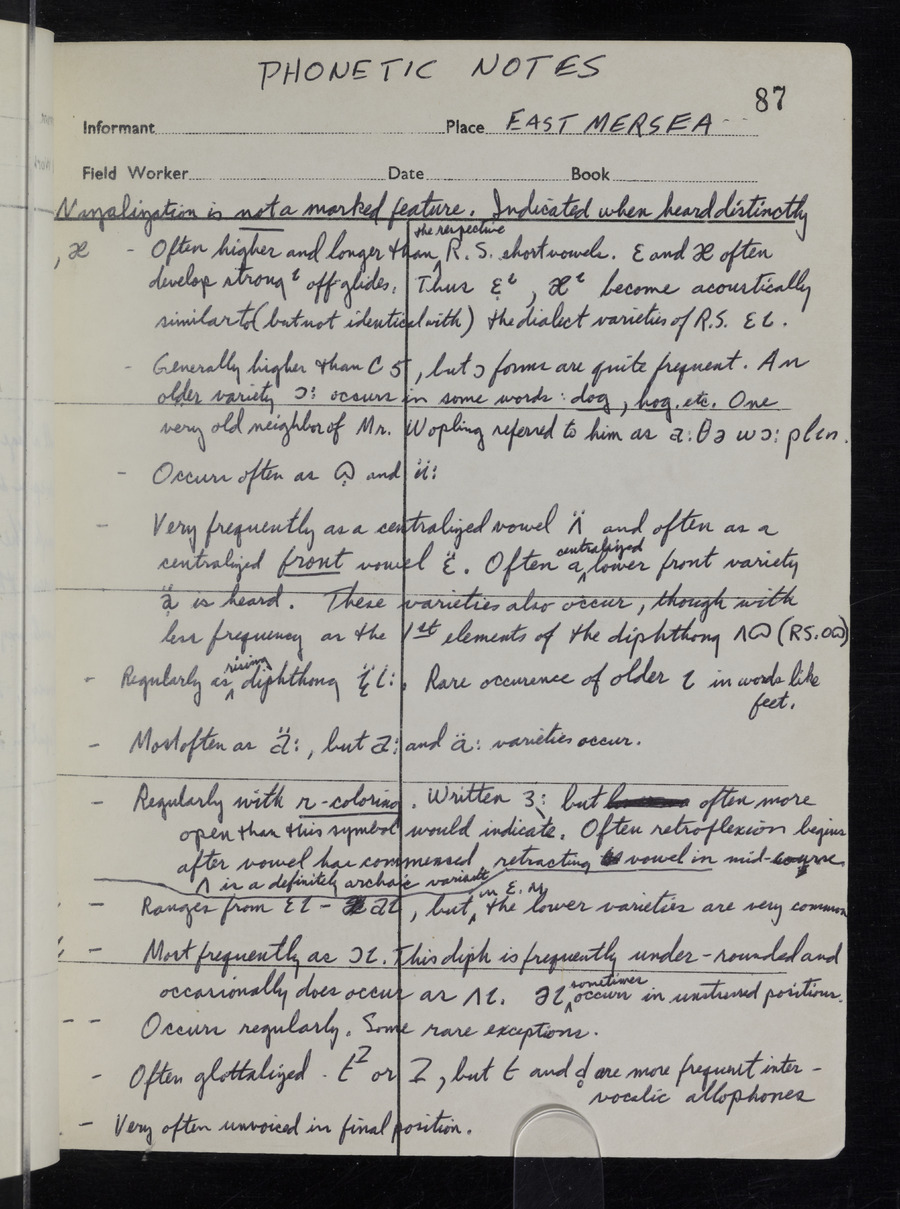 PHONETIC NOTES
87
Informant Place EAST MERSEA
Field Worker Date Book
Nazalization is not a marked feature. Indicated when heard distinctly
, æ - Often higher and longer than the respective R.S. short vowels. ɛ and æ often
develop strong ɩ off glides. Thus ɛ̣ᶥ, æᶥ become acoustically
similar to (but not identical with) the dialect varieties of R.S. ɛɩ.
- Generally higher than C5, but ɔ forms are quite frequent. An
older variety ɔ: occurs in some words: dog, hog, etc. One
very old neighbor of Mr. Wopling referred to him as
- Occurs often as ɷ̣ and ü:
- Very frequently as a centralized vowel ʌ̈ and often as a
centralized front vowel ɛ̈. Often a centralized lower front variety
is heard. These varieties also occur, though with
less frequency as the 1st elements of the diphthong ʌɷ (RS. oɷ)
- Regularly as rising diphthong Rare occurence of older ɩ in words like
feet.
- Most often as ä:, but a: and varieties occur.
- Regularly with r-coloring. Written ɜ: but often more
open than this symbol would indicate. Often retroflexion begins
after vowel has commensed, retracting vowel in mid-course
ʌ is a definitely archaic variant in E.M.
- Ranges from ɛɩ - aɩ, but the lower varieties are very common
- Most frequently as ɔɩ. This diph is frequently under-rounded and
occasionally does occur as ʌɩ. əɩ sometimes occurs in unstressed positions.
- - Occurs regularly. Some rare exceptions.
- Often glottalized - tˀ or ʔ, but t and d̥ are more frequent inter-
vocalic allophones
- Very often unvoiced in final position.